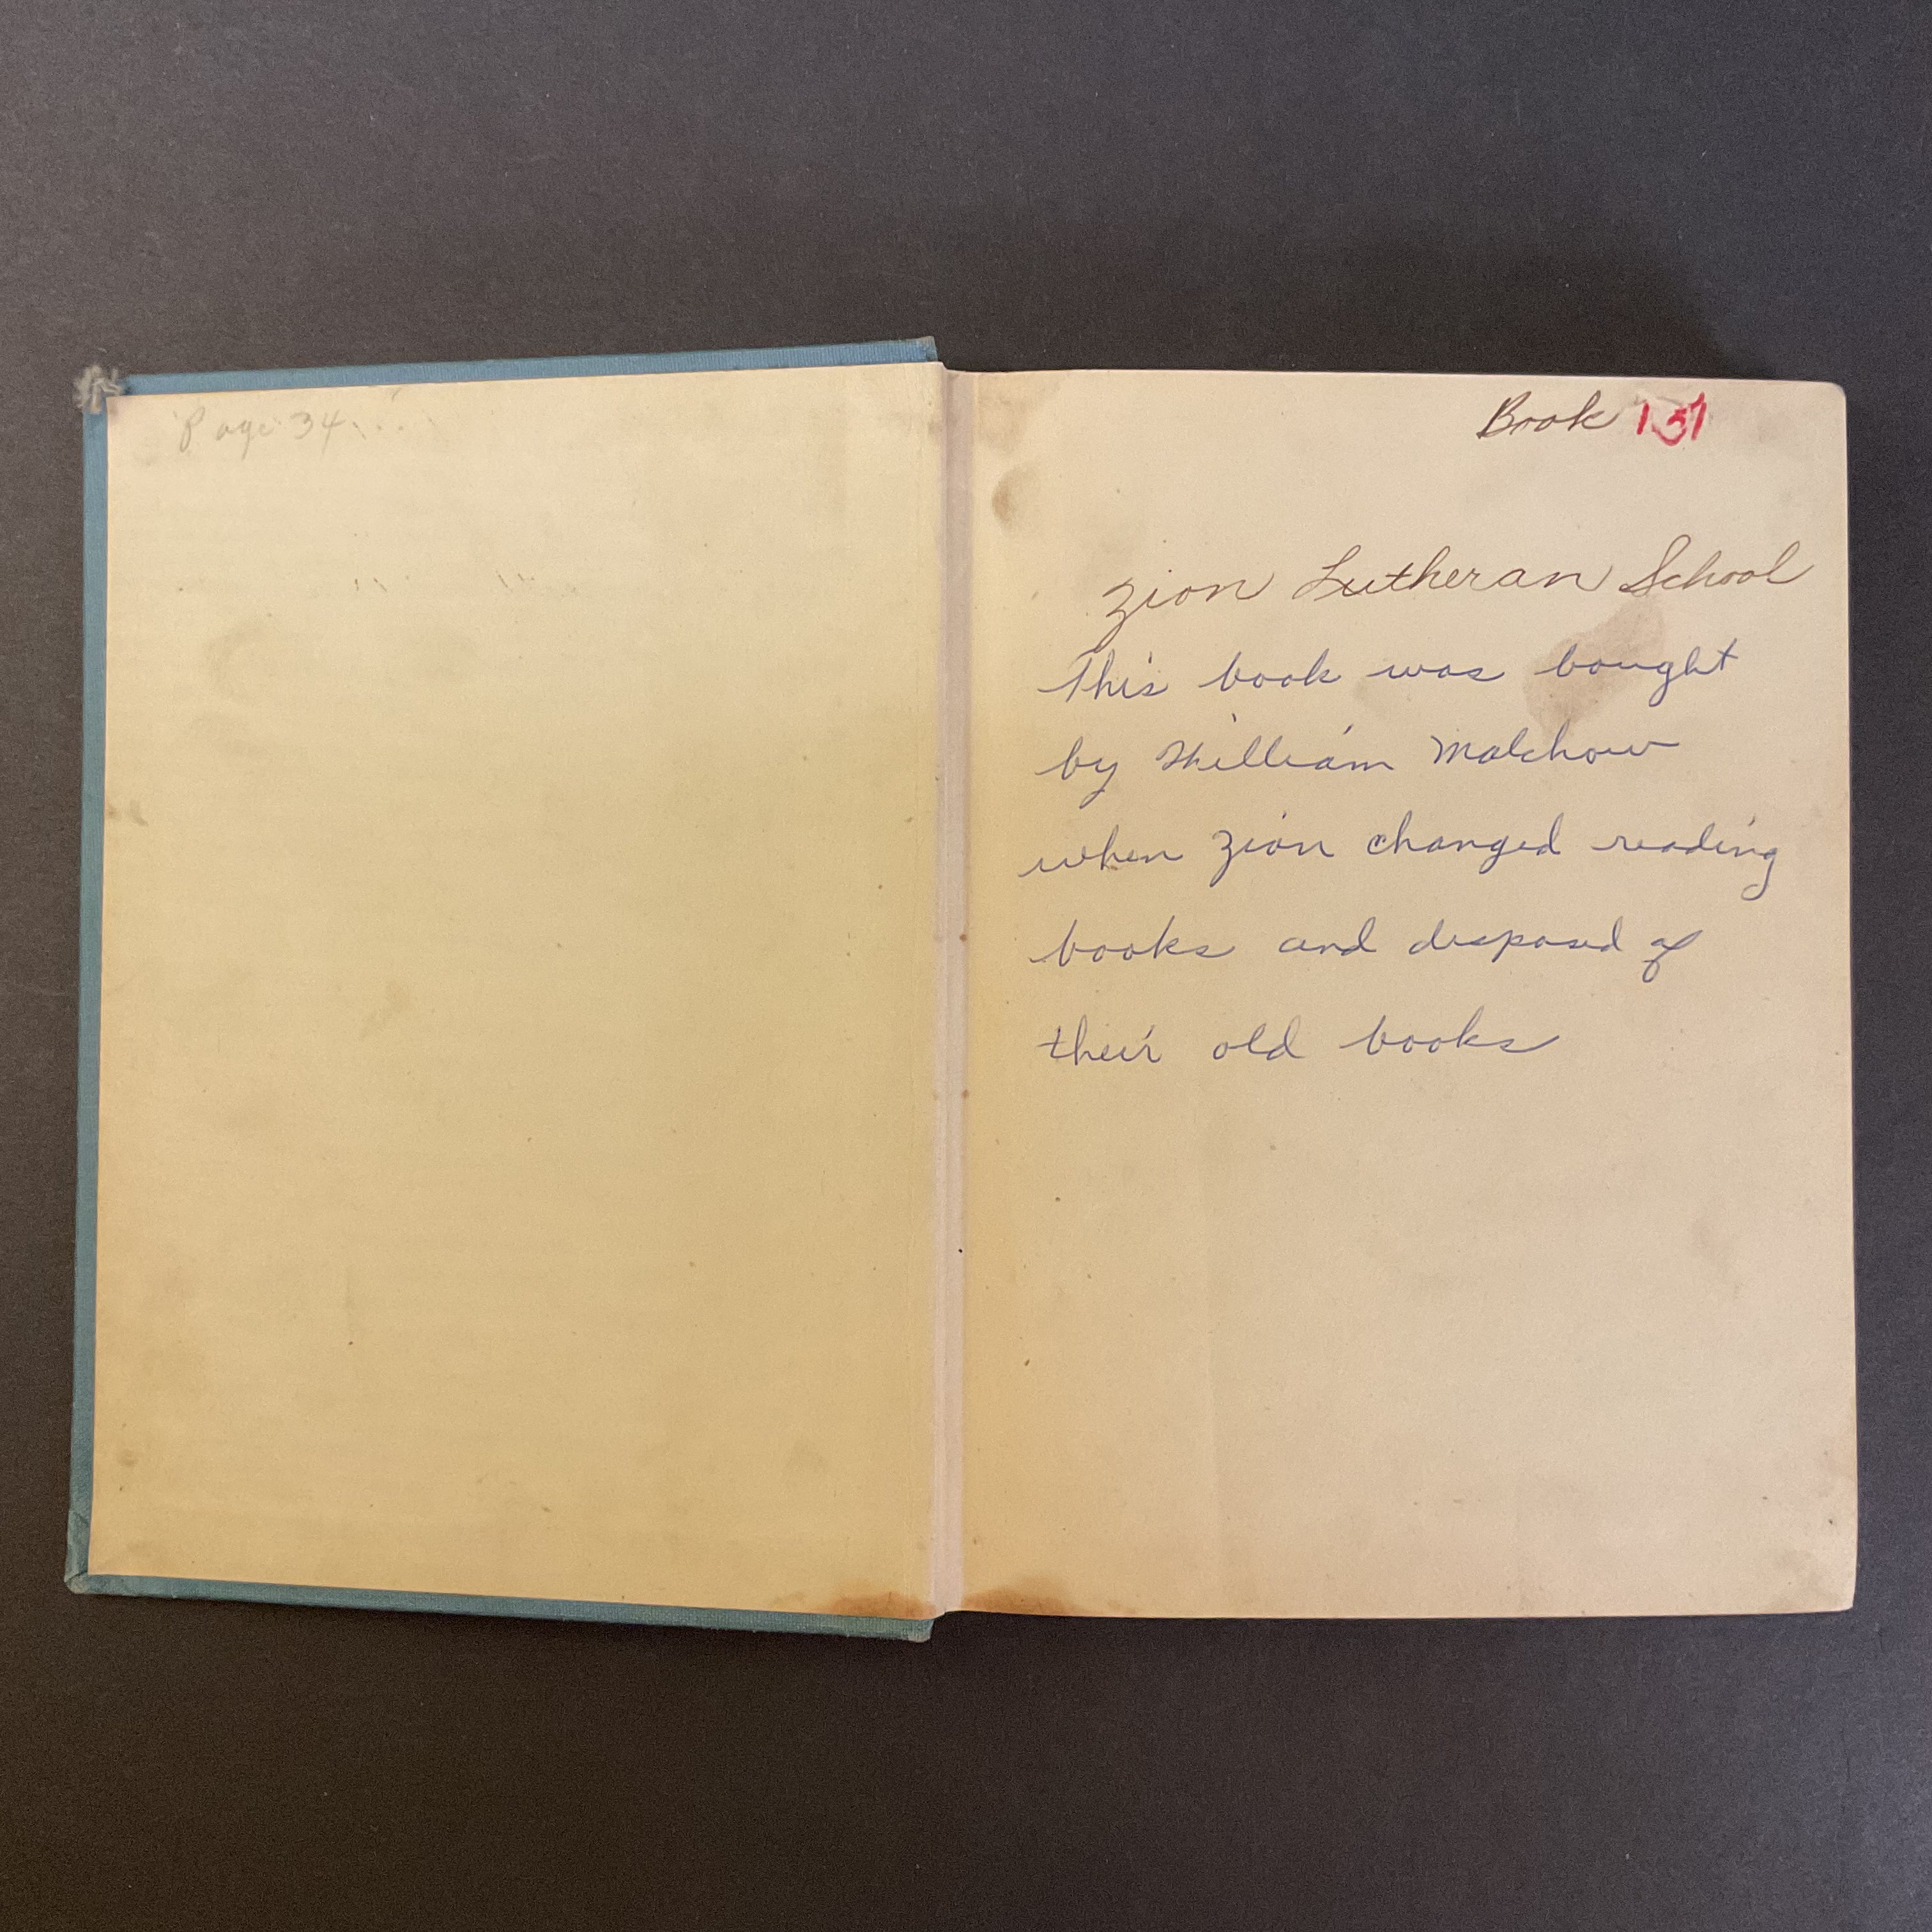 Page 34
Book 137
Zion Lutheran School
This book was bought
by William Malchow
when Zion changed reading
books and disposed of
their old books